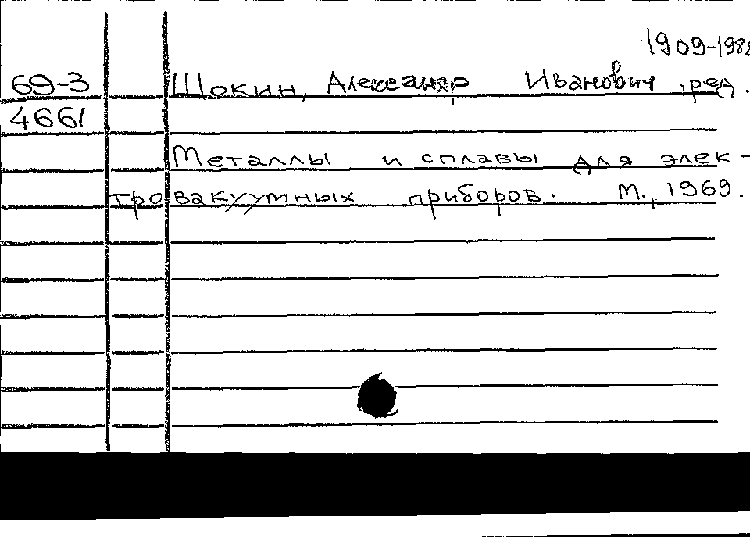 1909-1988
69-3 Шокин, Александр Иванович, ред.
4661
Металлы и сплавы для элек-
тровакуумных приборов. М., 1969.